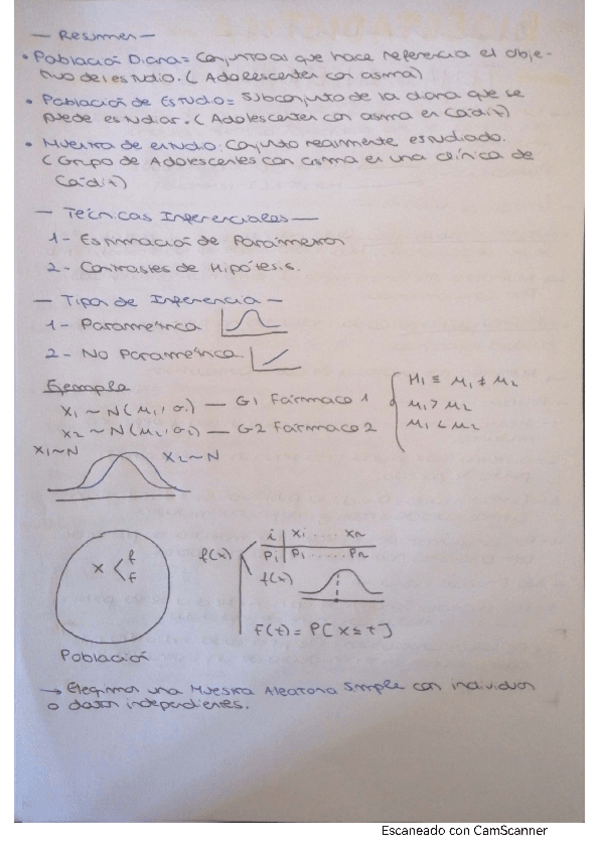 — Resumen —
• Población Diana = Conjunto al que hace referencia el obje-
tivo del estudio. (Adolescentes con asma)
• Población de Estudio = Subconjunto de la diana que se
puede estudiar. (Adolescentes con asma en Cádiz)
• Muestra de estudio: Conjunto realmente estudiado.
(Grupo de Adolescentes con asma en una clínica de
Cádiz)
— Técnicas Inferenciales —
1 - Estimación de Parámetros
2 - Contrastes de Hipótesis.
— Tipos de Inferencia —
1 - Paramétrica
2 - No Paramétrica
Ejemplo
X₁ ~ N(μ₁, σ₁) — G1 Fármaco 1
X₂ ~ N(μ₂, σ₂) — G2 Fármaco 2
H₁ ≡ μ₁ ≠ μ₂
μ₁ > μ₂
μ₁ < μ₂
X₁~N
X₂~N
X < f F
Población
f(x)
i | X₁ .... Xn
Pi | P₁ .... Pn
f(x)
F(t) = P[X ≤ t]
→ Elegimos una Muestra Aleatoria Simple con individuos
o datos independientes.
Escaneado con CamScanner